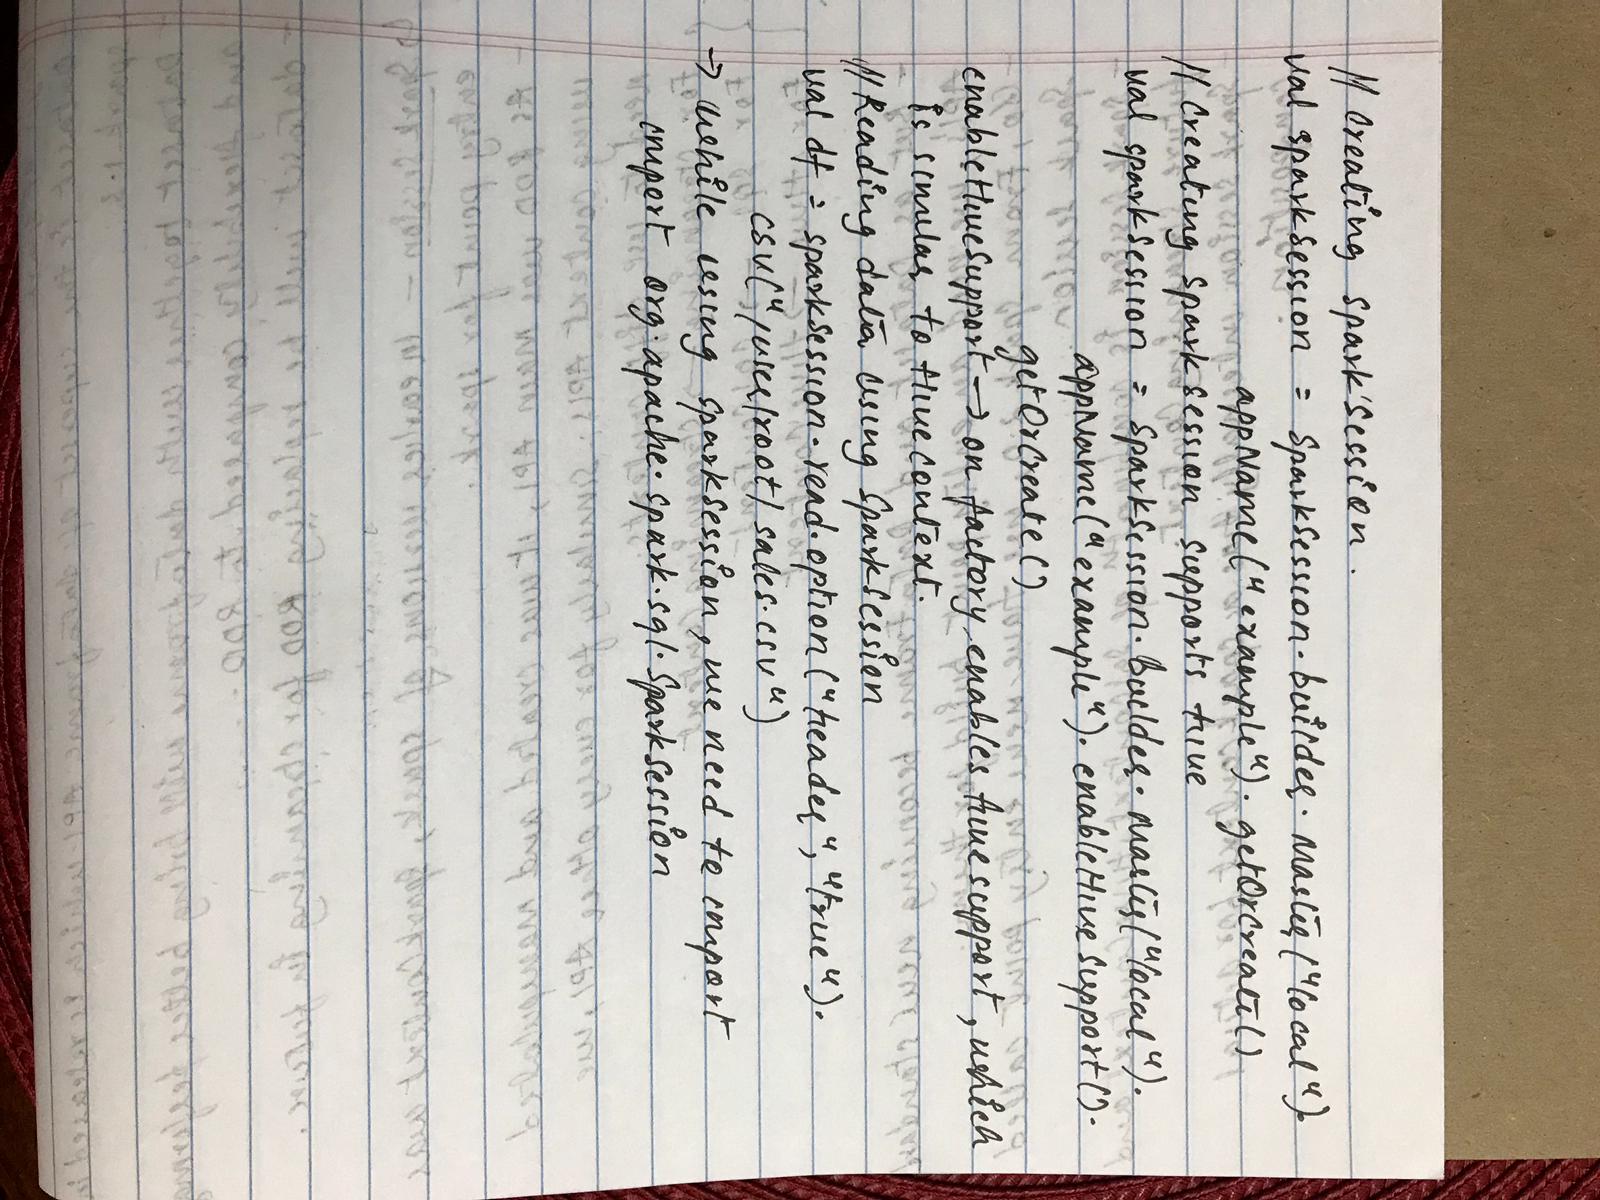 // Creating Spark Session.
val sparkSession = SparkSession.builder.master("local").
appName("example").getOrCreate()
// Creating SparkSession supports hive
val sparkSession = SparkSession.builder.master("local").
appName("example").enableHiveSupport().
getOrCreate()
enableHiveSupport → on factory, enables hive support, which
is similar to HiveContext.
// Reading data using SparkSession
val df = sparkSession.read.option("header", "true").
csv("/user/root/sales.csv")
→ While using sparkSession, we need to import
import org.apache.spark.sql.SparkSession